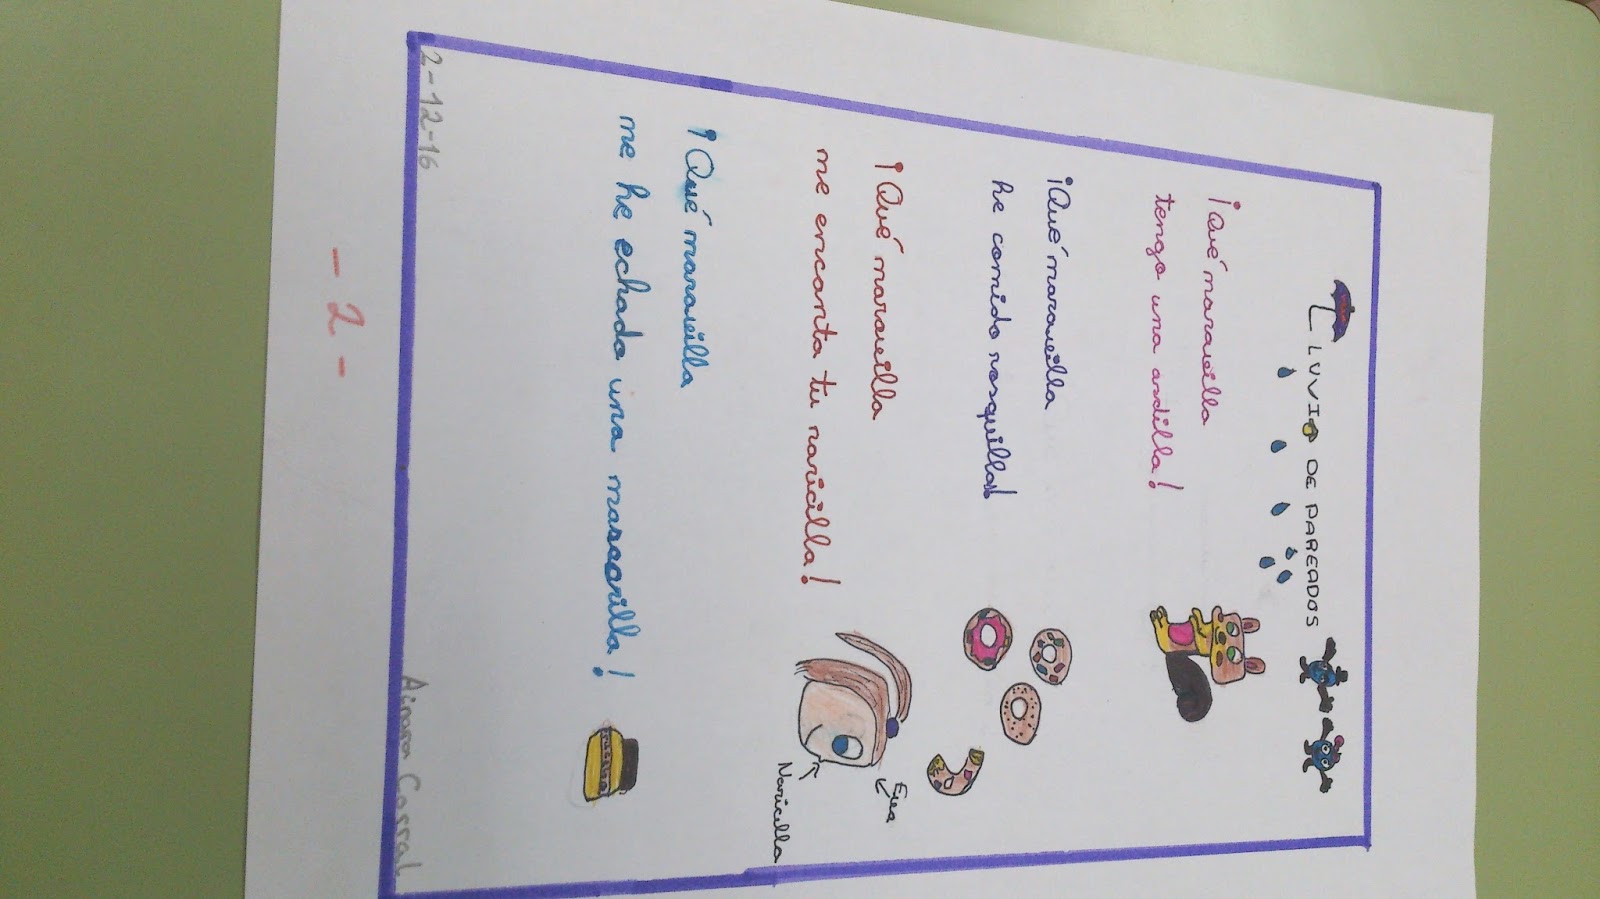 LLUVIA DE PAREADOS
¡Qué maravilla
tengo una ardilla!
¡Qué maravilla
he comido rosquilla!
¡Qué maravilla
me encanta tu naricilla!
Naricilla
¡Qué maravilla
me he echado una mascarilla!
2-12-16
Aimara Corral
- 2 -